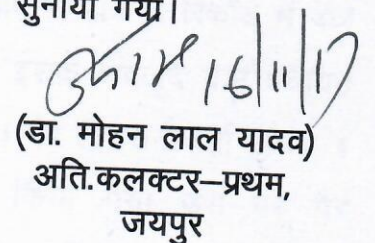 सुनाया गया।
16/11/17
(डा. मोहन लाल यादव)
अति.कलक्टर–प्रथम,
जयपुर